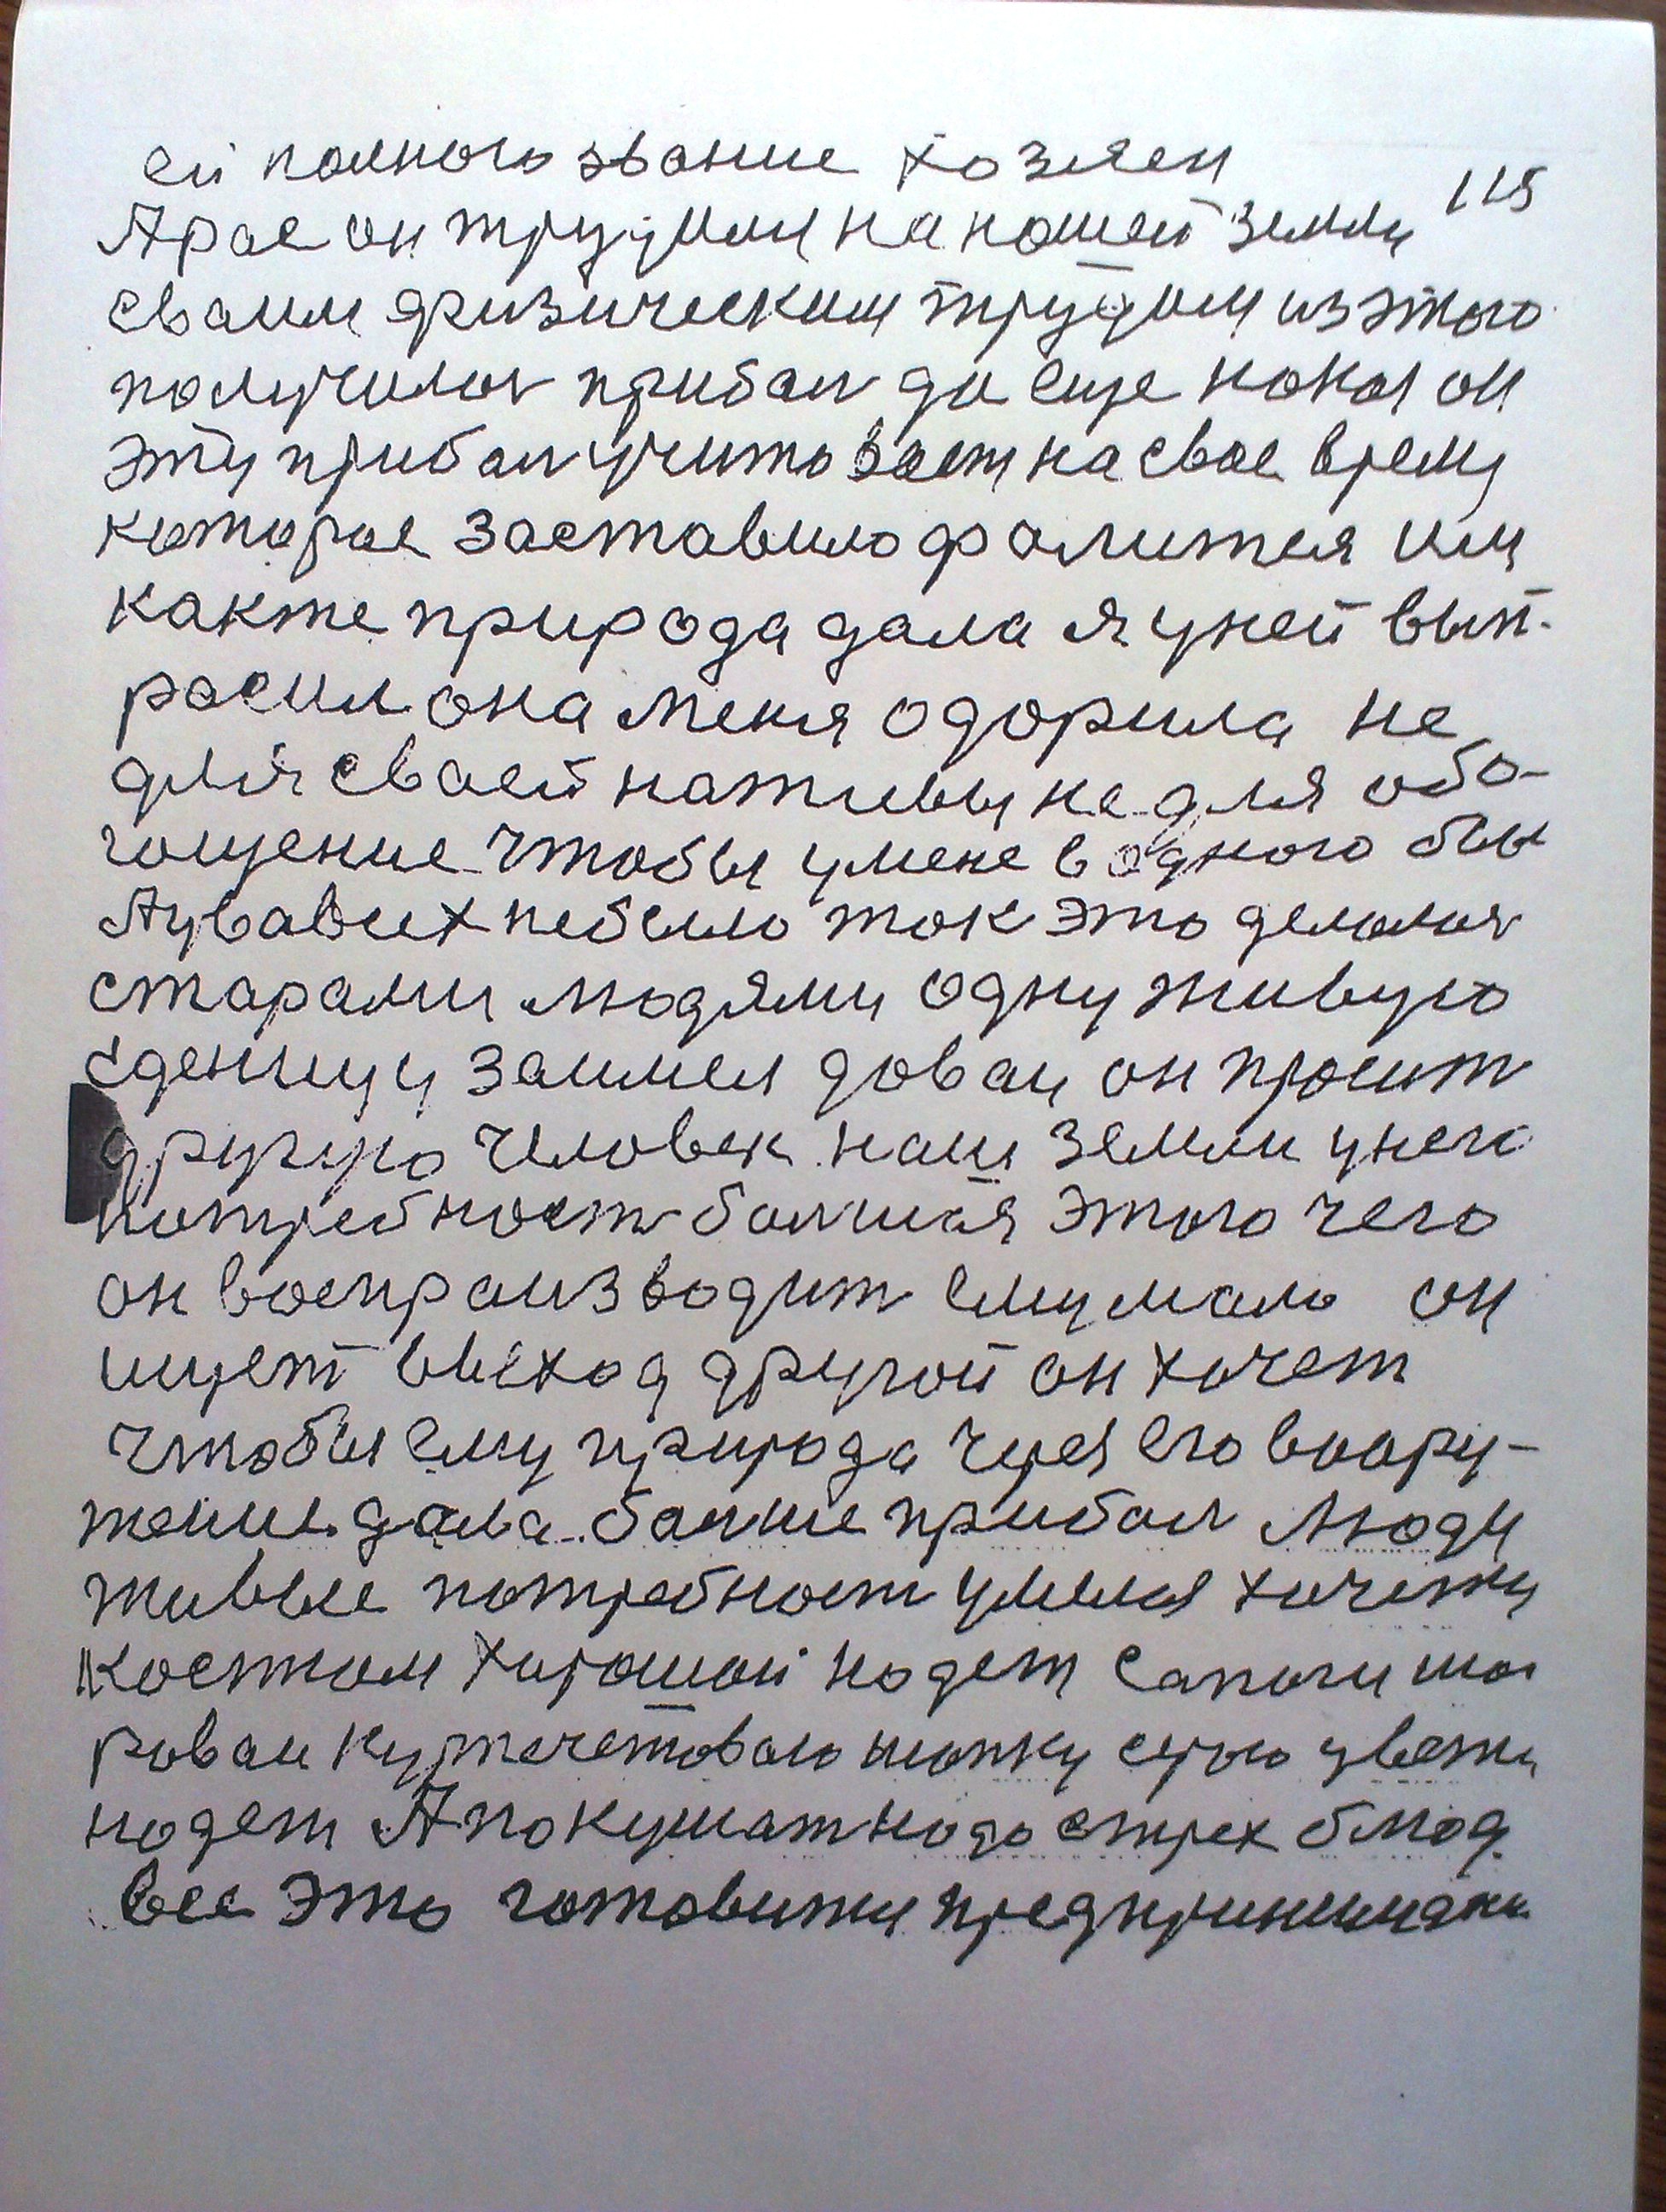 ей полного звание хозяен
115
А рас он трудимы на нашей земли
сваим физическим трудим из этого
получилось прибал да еще какая он
эту прибал учитовает на свае врему
каторае заставило фалится им
как те природа дала я у ней вып-
расил она меня одорила не
для сваей наживы не для обо-
гощение чтобы у мене в одного бы
А у вавсих небело ток это делолось
старами людями одну живую
еденицу заимел довай он просит
другую человек наш земли у него
потребность балшая этого чего
он воспраизводит ему мало он
ищет выход другой он хочет
чтобы ему природа через его воору-
жение дала балше прибал люди
живые потребност имея хочетц
костюм хорошой надет сапоги ша
ровай шапку серою цвету
надет А покушат надо с трех блюд
все это готовитц предприниму